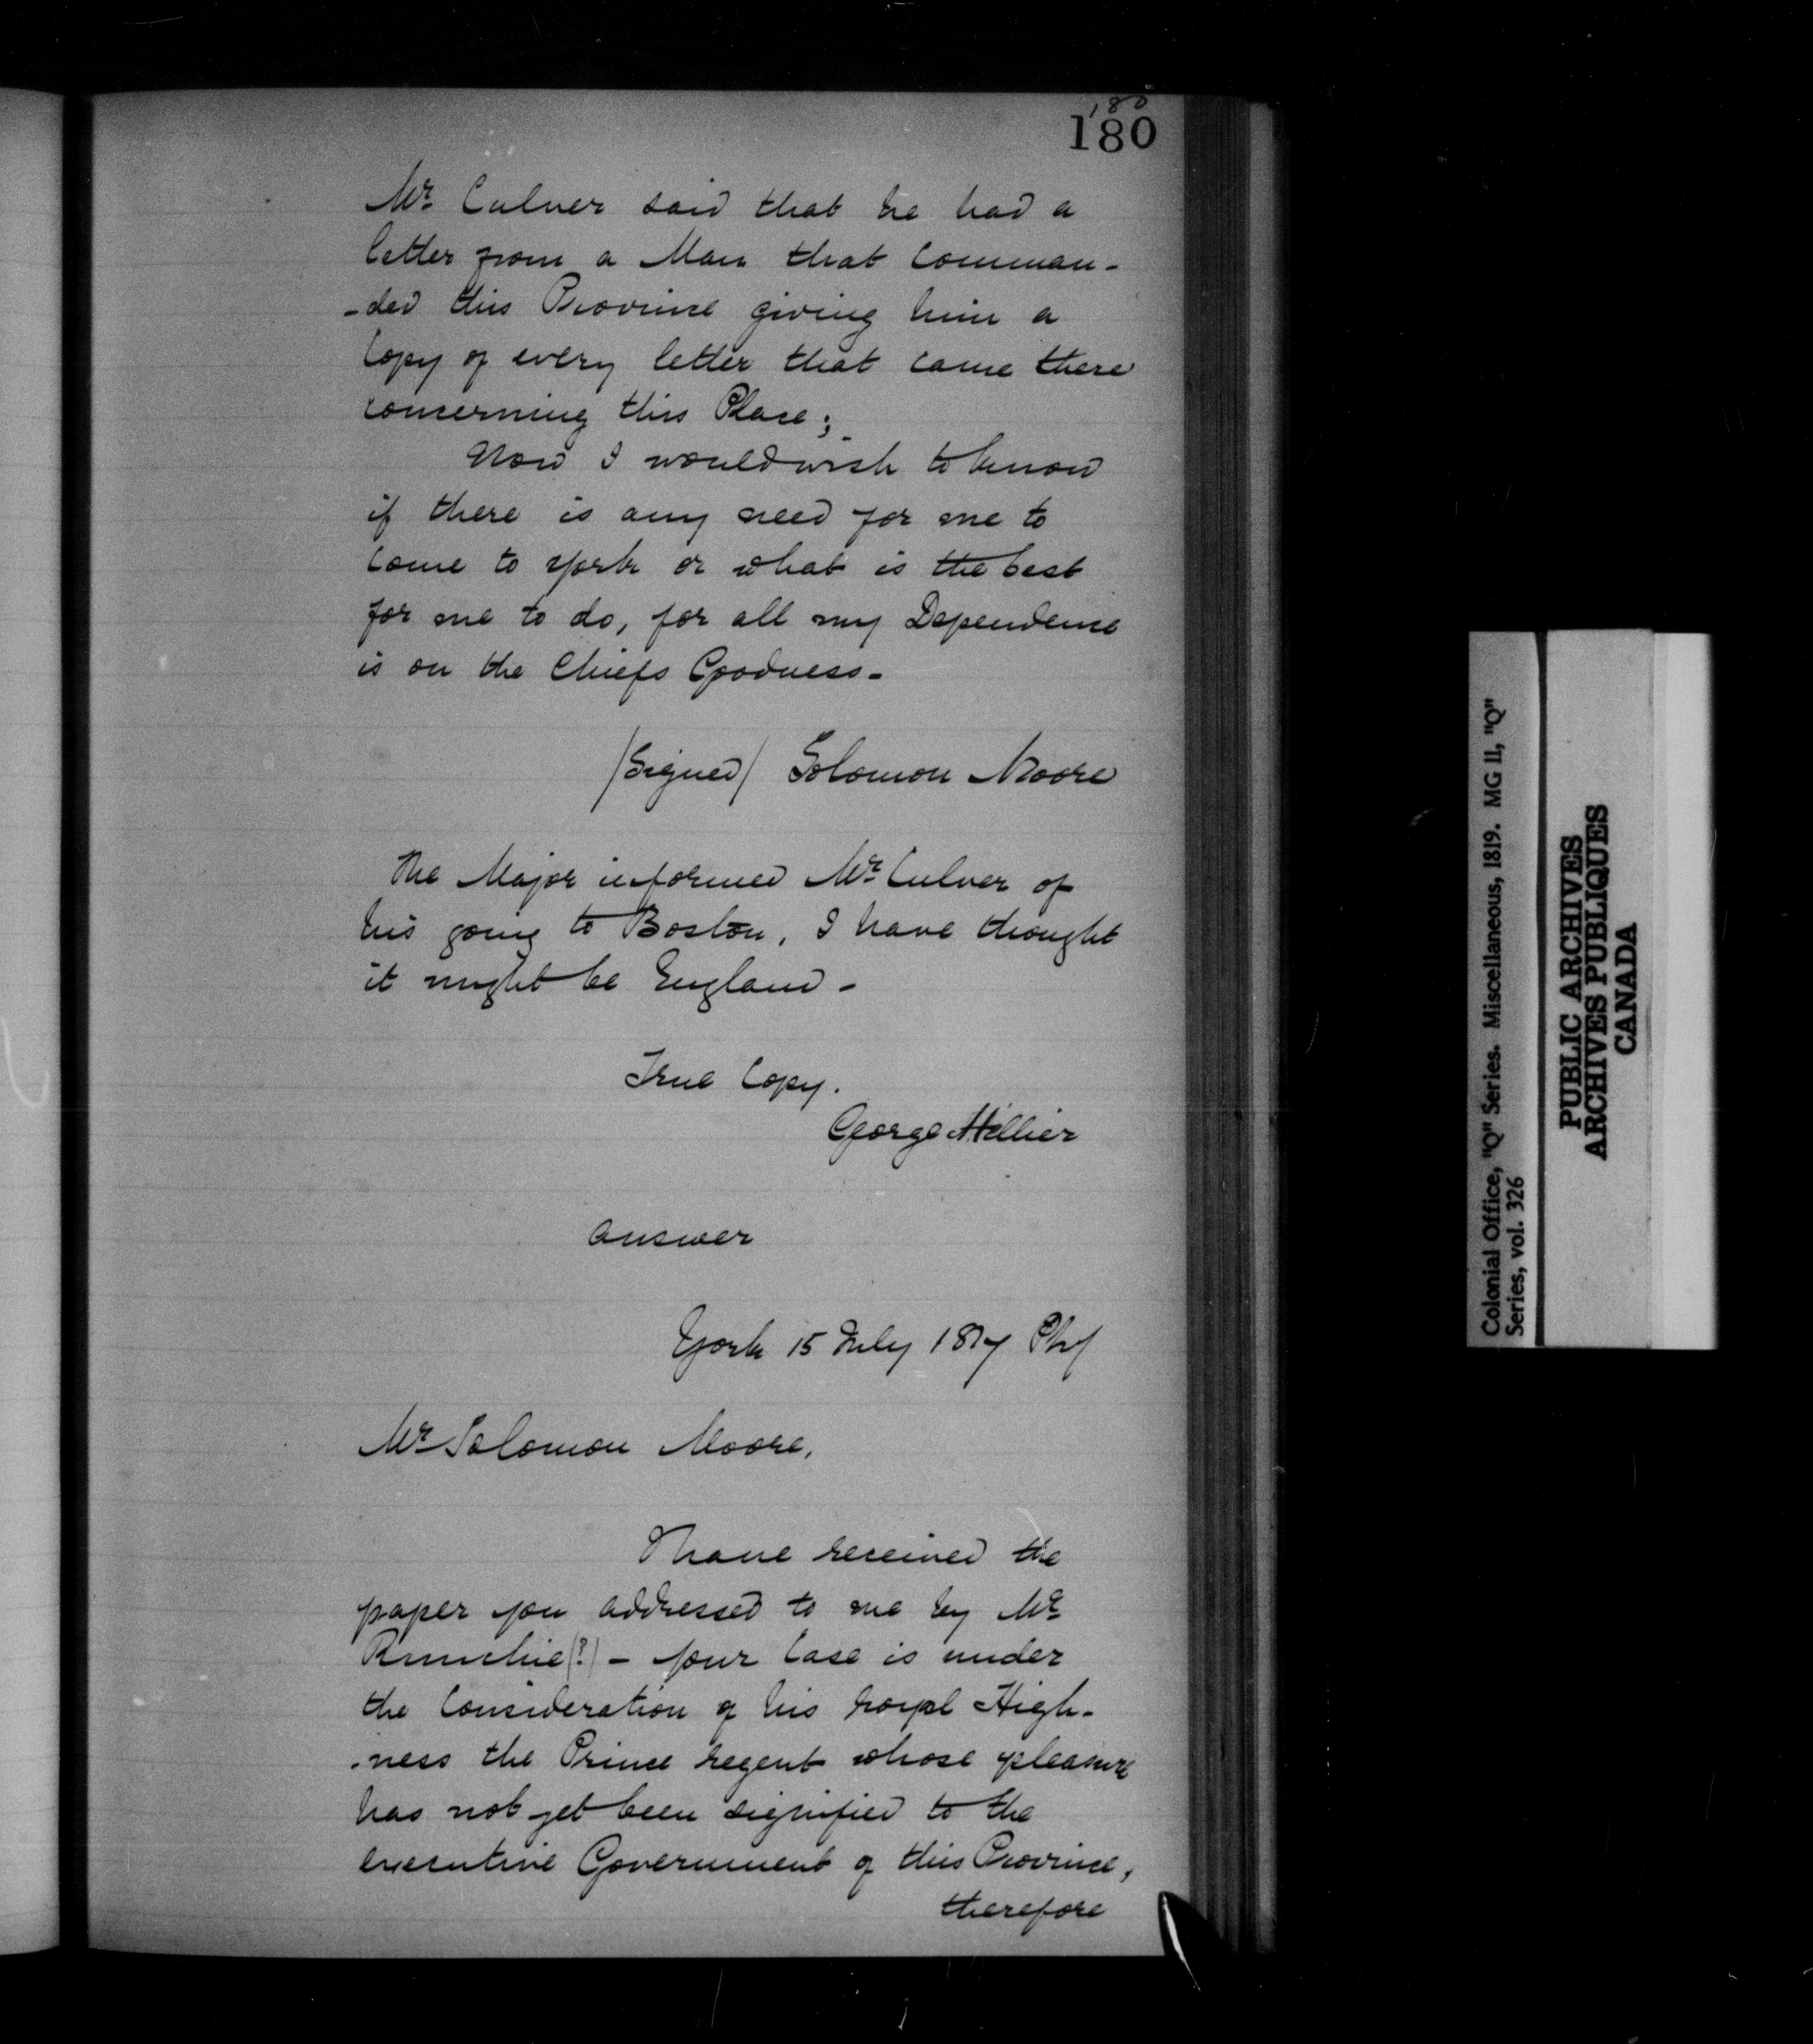 180
180
Mr. Culver said that he had a
letter from a Man that comman-
-ded this Province giving him a
Copy of every letter that came there
concerning this Place;
Now I would wish to know
if there is any need for me to
come to York or what is the best
for me to do, for all my Dependence
is on the Chiefs Goodness-
/Signed/ Solomon Moore
The Major informed Mr. Culver of
his going to Boston, I have thought
it might be England-
True Copy.
George Hillier
Answer
York 15 July 1817
Mr. Solomon Moore,
I have received the
paper you addressed to me by Mr.
(?) - your Case is under
the Consideration of his royal High-
-ness the Prince regent whose pleasure
has not yet been signified to the
executive Government of this Province,
therefore
Colonial Office, "Q" Series. Miscellaneous, 1819. MG 11, "Q"
Series, vol. 326
PUBLIC ARCHIVES
ARCHIVES PUBLIQUES
CANADA